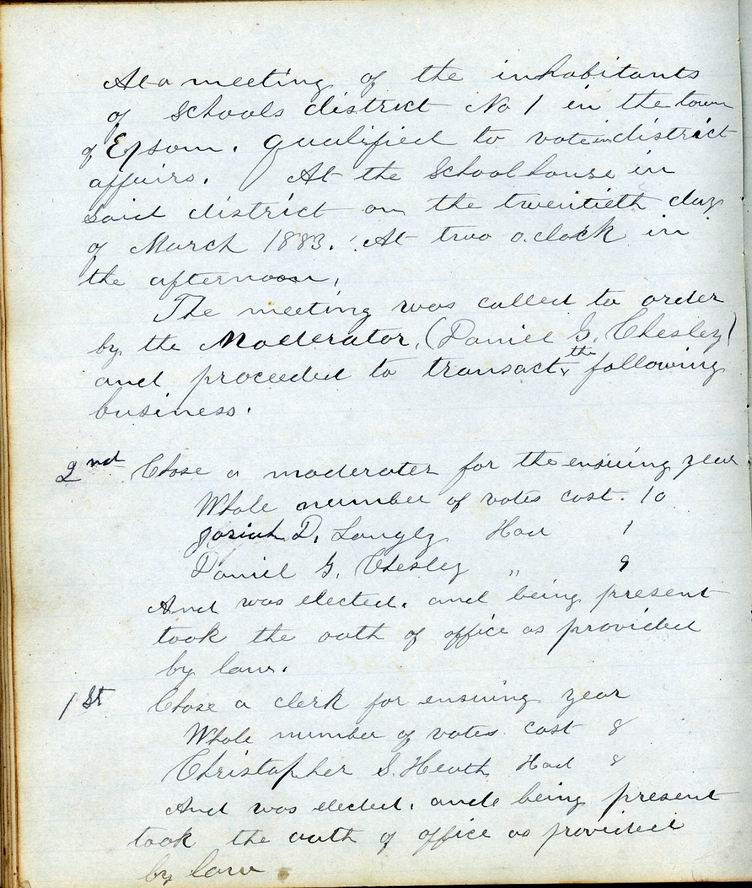 At a meeting of the inhabitants
of Schools district No 1 in the town
of Epsom. qualified to vote in district
affairs. At the School house in
said district on the twentieth day
of March 1883. At two o.clock in
the afternoon.
The meeting was called to order
by the Moderator. (Daniel G. Chesley)
and proceeded to transact the following
business.
2nd Chose a moderater for the ensuing year.
Whole number of votes cast. 10
Josiah D. Langly Had 1
Daniel G. Chesley " 9
And was elected. and being present
took the oath of office as provided
by law.
1st Chose a clerk for ensuing year
Whole number of votes cast 8
Christopher S. Heath Had 8
And was elected. and being present
took the oath of office as provided
by law